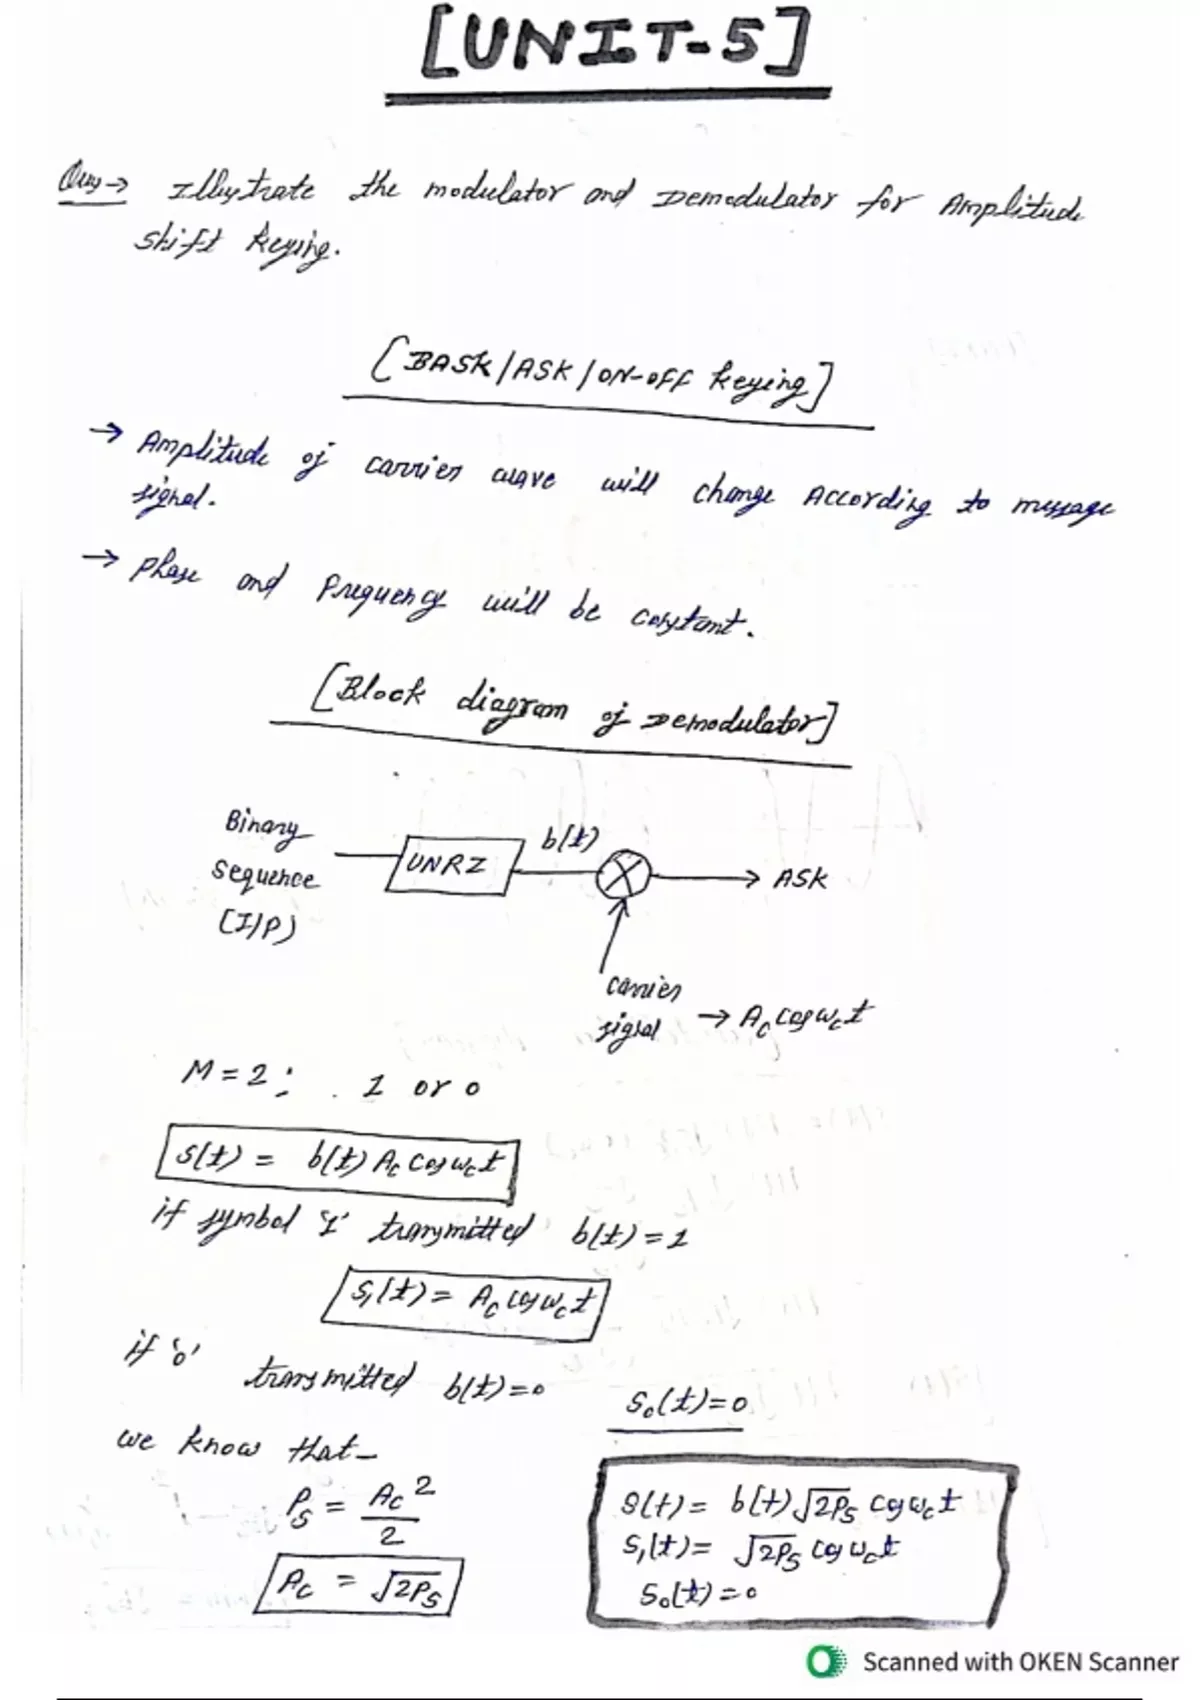 [UNIT-5]
Ques→ Illustrate the modulator and Demodulator for Amplitude
shift keying.
[BASK/ASK/ON-OFF keying]
→ Amplitude of carrier wave will change According to message
signal.
→ Phase and Frequency will be constant.
[Block diagram of Demodulator]
Binary
sequence
(I/P)
UNRZ
b(t)
ASK
carrier
signal → Ac cos wct
M = 2 ; 1 or 0
s(t) = b(t) Ac cos wct
if symbol '1' transmitted b(t) = 1
s1(t) = Ac cos wct
if '0' transmitted b(t) = 0
S0(t) = 0
we know that -
Ps = Ac²/2
Ac = √2Ps
S(t) = b(t) √2Ps cos wct
S1(t) = √2Ps cos wct
S0(t) = 0
Scanned with OKEN Scanner